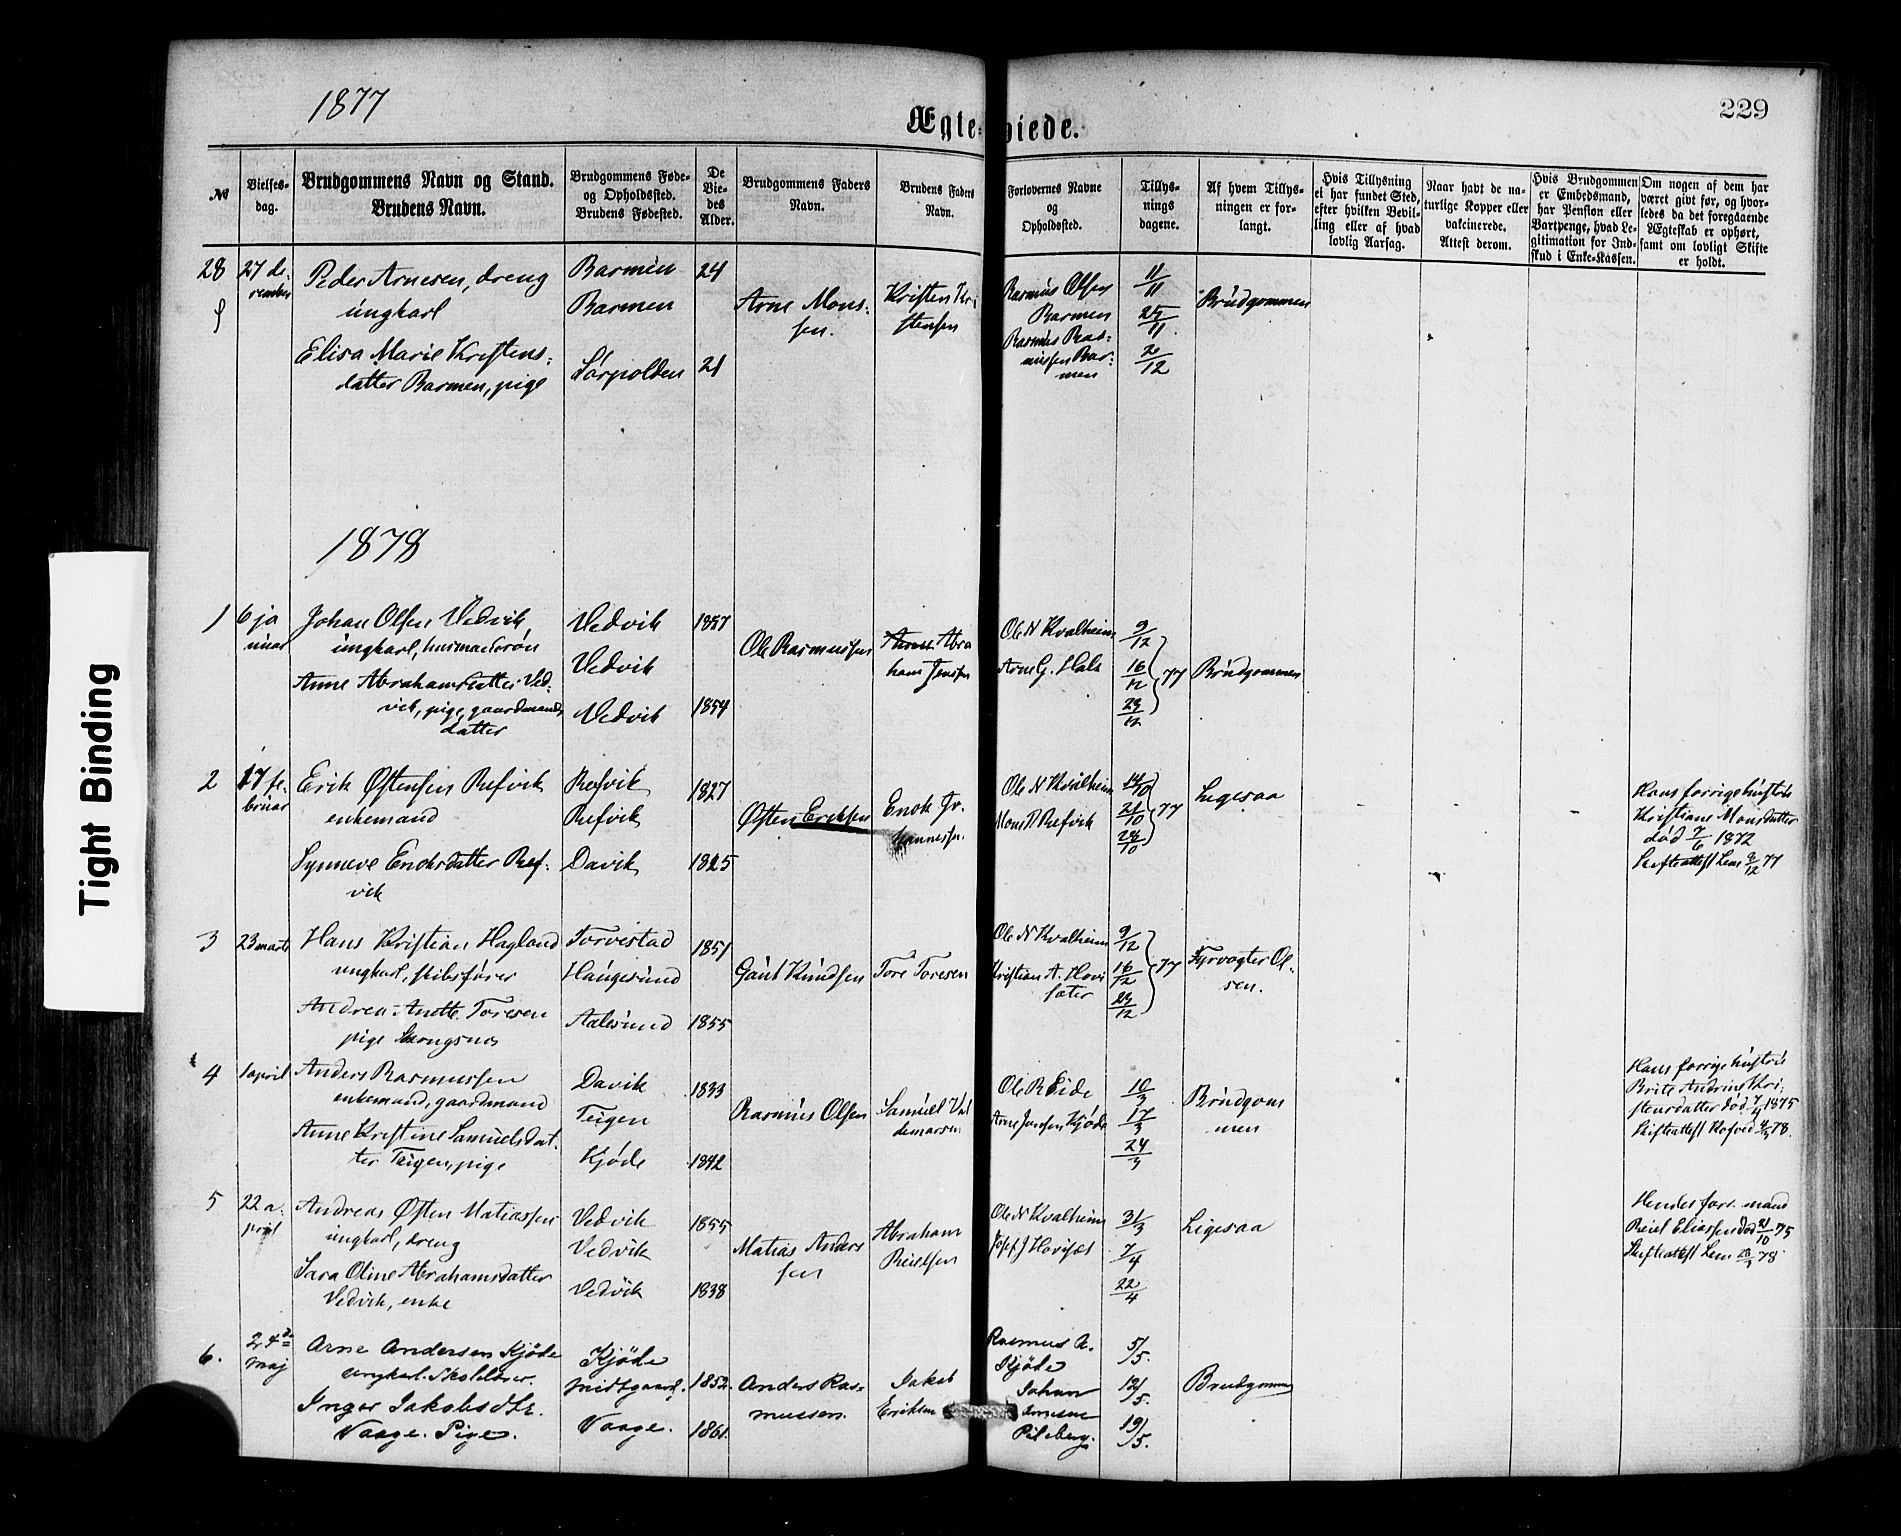 1877
Ægte-viede.
229
No
Vielses-
dag.
Brudgommens Navn og Stand.
Brudens Navn.
Brudgommens Føde-
og Opholdssted.
Brudens Fødested.
De
Vie-
des
Alder.
Brudgommens Faders
Navn.
Brudens Faders
Navn.
Forlovernes Navne
og
Opholdssted.
Tillys-
nings
dagene.
Af hvem Tillys-
ningen er for-
langt.
Hvis Tillysning
ei har fundet Sted,
efter hvilken Bevil-
ling eller af hvad
lovlig Aarsag.
Naar havt de na-
turlige Kopper eller
vakcinerede.
Attest derom.
Hvis Brudgommen
er Embedsmand,
har Pension eller
Vartpenge, hvad Le-
gitimation for Ind-
skud i Enke-Kassen.
Om nogen af dem har
været givt før, og hvor-
ledes da det foregaaende
Ægteskab er ophørt,
samt om lovligt Skifte
er holdt.
28
27 de-
cember
Peder Arnesen, dreng
ungkarl
Elisa Marie Kristens-
datter Barmen, pige
Barmen
Barmen
Sørpolden
24
21
Arne Mons-
sen.
Kristen Kri
stensen
Rasmus Olsen
Barmen
Rasmus Ras-
mussen Bar-
men
11/11
25/11
2/12
Brudgommen
1878
1
6 ja
nuar
Johan Olsen Vedvik
ungkarl, husmandssøn
Anne Abrahamsdatter Ved-
vik, pige, gaardmands
datter
Vedvik
Vedvik
Vedvik
1857
1854
Ole Rasmussen
Abra
ham Jensen
Ole N Kvalheim
Arne G. Hals
9/12
16/12
23/12
77
Brudgommen
2
17 fe-
bruar
Erik Østensen Refvik
enkemand
Synneve Enoksdatter Ref-
vik
Refvik
Refvik
Davik
1827
1825
Østen Eriksen
Enok Jo-
hannessen
Ole N Kvalheim
Mons R Refvik
14/10
21/10
28/10
77
Ligesaa
Hans forrige hustru
Kristiane Monsdatter
død 7/6 1872
Skifteattest Lem 9/12 77
3
23 marts
Hans Kristian Hagland
ungkarl, skibsfører
Andrea Anette Toresen
pige Skongsnes
Torvestad
Haugesund
Aalesund
1851
1855
Gaut Knudsen
Tore Toresen
Ole N Kvalheim
Kristian A. Hovi
sæter
9/12
16/12
23/12
77
Fyrvogter Ol-
sen.
4
1 april
Anders Rasmussen
enkemand, gaardmand
Anne Kristine Samuelsdat-
ter Teigen, pige
Davik
Teigen
Kjøde
1833
1842
Rasmus Olsen
Samuel Val
demarsen
Ole R Eide
Arne Jensen Kjøde
10/3
17/3
24/3
Brudgom
men
Hans forrige hustru
Brite Andrine Kri-
stensdatter død 7/4 1875
Skifteattest 78.
5
22 a-
pril
Andreas Østen Matiassen
ungkarl, dreng
Sara Oline Abrahamsdatter
Vedvik, enke
Vedvik
Vedvik
Vedvik
1855
1838
Matias Anders
sen
Abraham
Reielsen
Ole N Kvalheim
31/3
7/4
22/4
Ligesaa
Hendes forr. mand
Reiel Eliassen død 21/10 75
Skifteattest Lem 78
6.
24de
maj
Arne Andersen Kjøde
ungkarl. Skolelærer.
Inger Jakobsdtr.
Vaage. Pige.
Kjøde
midtgaard.
Vaage.
1852.
1861.
Anders Ras-
mussen.
Jakob
Eriksen
Rasmus A.
Kjøde
Johan
Arnesen
Pileberg.
5/5.
12/5.
19/5.
Brudgommen
Tight Binding